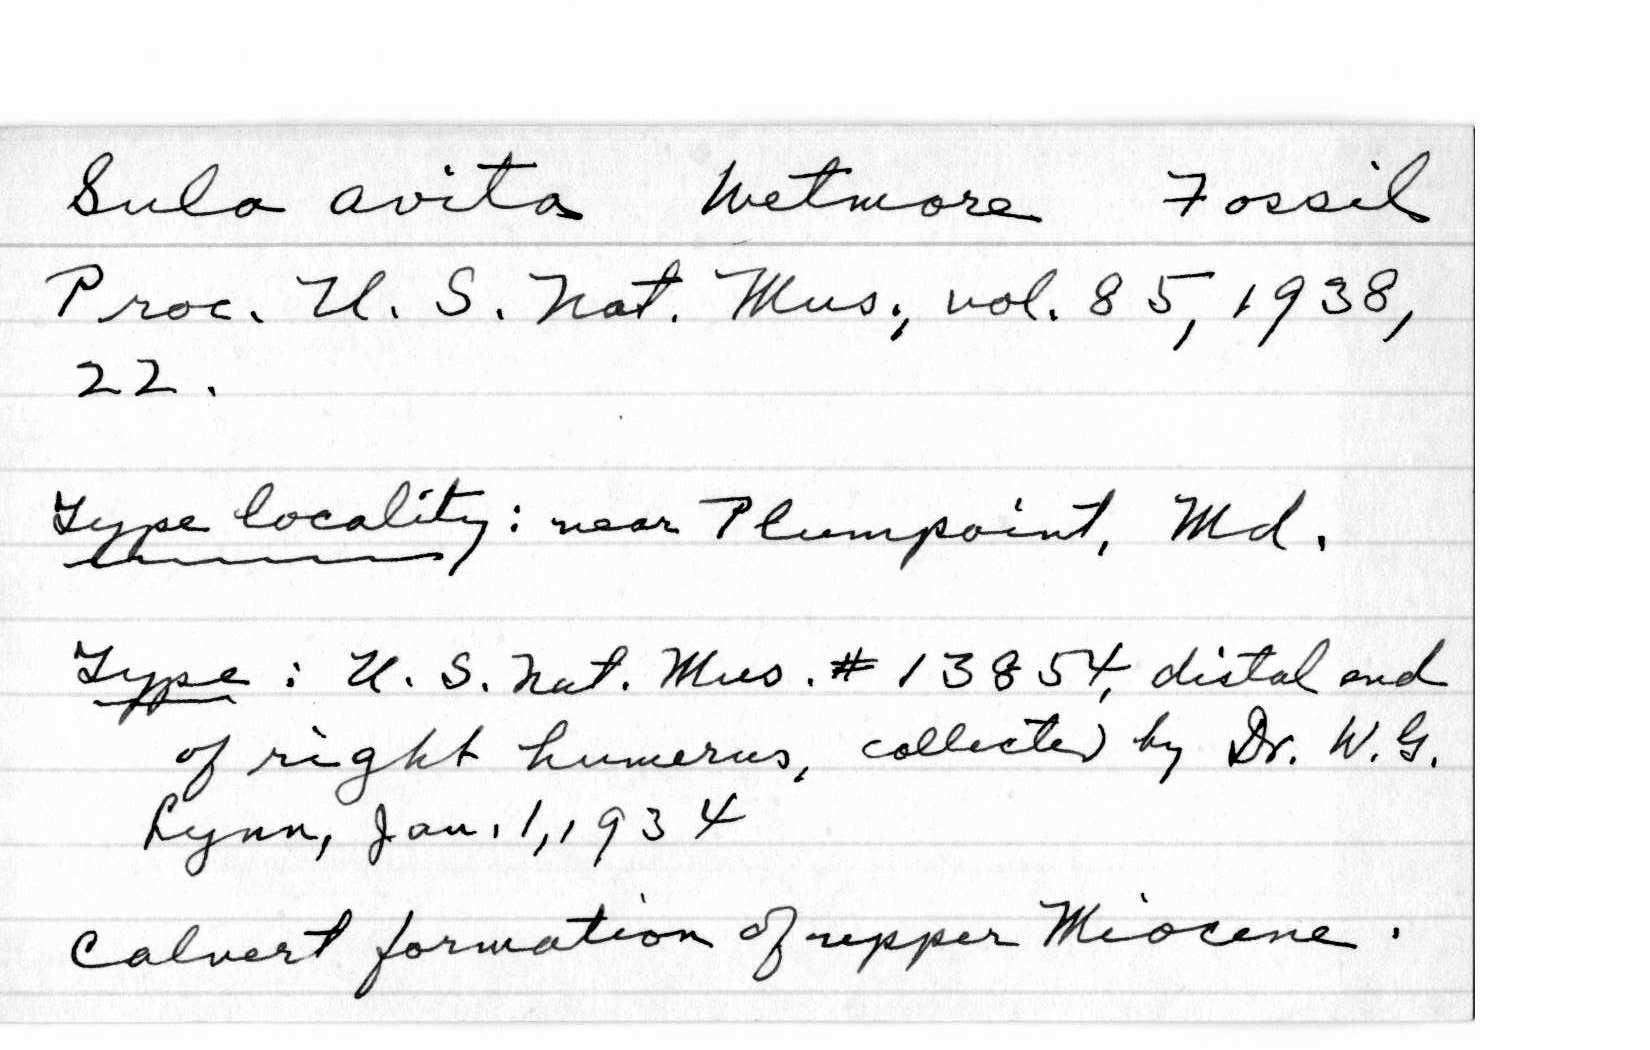 Sula avita Wetmore Fossil
Proc. U. S. Nat. Mus., vol. 85, 1938,
22.
Type locality: near Plumpoint, Md.
Type: U. S. Nat. Mus. # 13854, distal end
of right humerus, collected by Dr. W. G.
Lynn, Jan. 1, 1934
Calvert formation of upper Miocene.